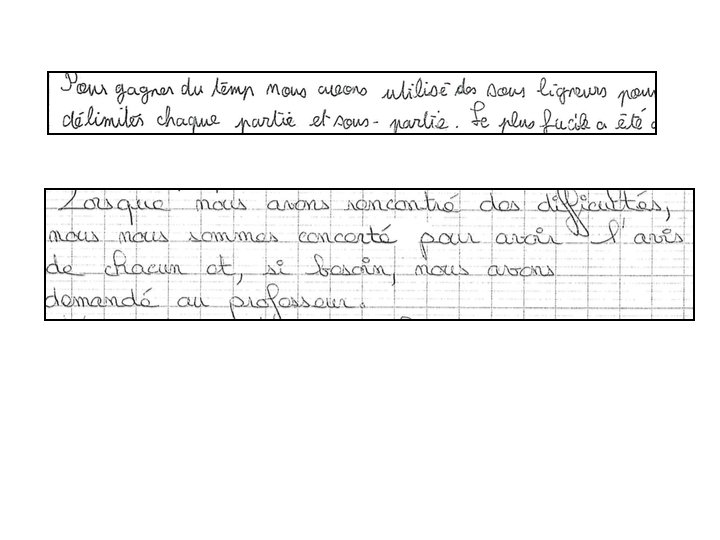 Pour gagner du temp nous avons utilisé des sous ligneurs pour
délimiter chaque partie et sous-partie. Le plus facile a été
Lorsque nous avons rencontré des difficultés,
nous nous sommes concerté pour avoir l'avis
de chacun et, si besoin, nous avons
demandé au professeur.